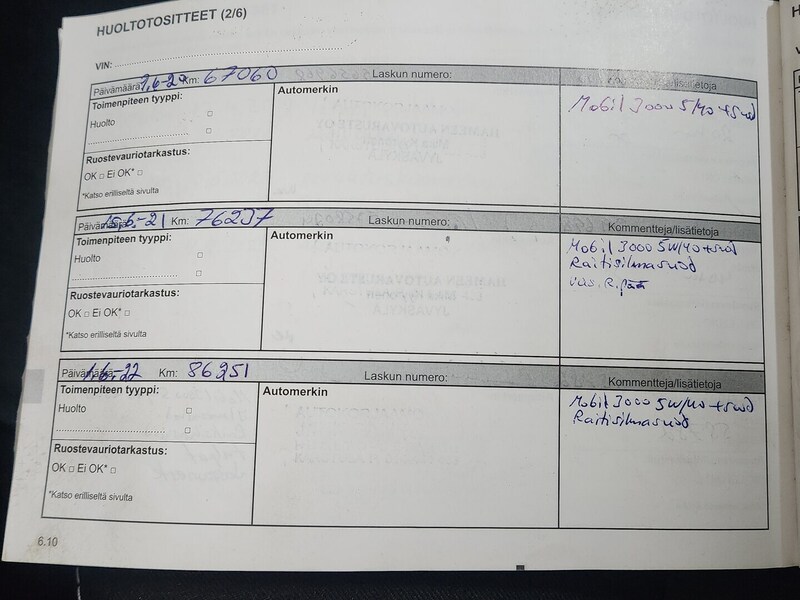 HUOLTOTOSITTEET (2/6)
VIN:
Päivämäärä Km: 67060 Laskun numero: lisätietoja
Toimenpiteen tyyppi:
Huolto
Ruostevauriotarkastus:
OK □ Ei OK* □
*Katso erilliseltä sivulta
Automerkin
Mobil 3000 5/40 + suod
Päivämäärä 15.6.-21 Km: 76237 Laskun numero: Kommentteja/lisätietoja
Toimenpiteen tyyppi:
Huolto
Ruostevauriotarkastus:
OK □ Ei OK* □
*Katso erilliseltä sivulta
Automerkin
Mobil 3000 5W/40 + suod
Raitisilmasuod
vas. R.pää
Päivämäärä 1.6.-22 Km: 86251 Laskun numero: Kommentteja/lisätietoja
Toimenpiteen tyyppi:
Huolto
Ruostevauriotarkastus:
OK □ Ei OK* □
*Katso erilliseltä sivulta
Automerkin
Mobil 3000 5W/40 + suod
Raitisilmasuod
6.10